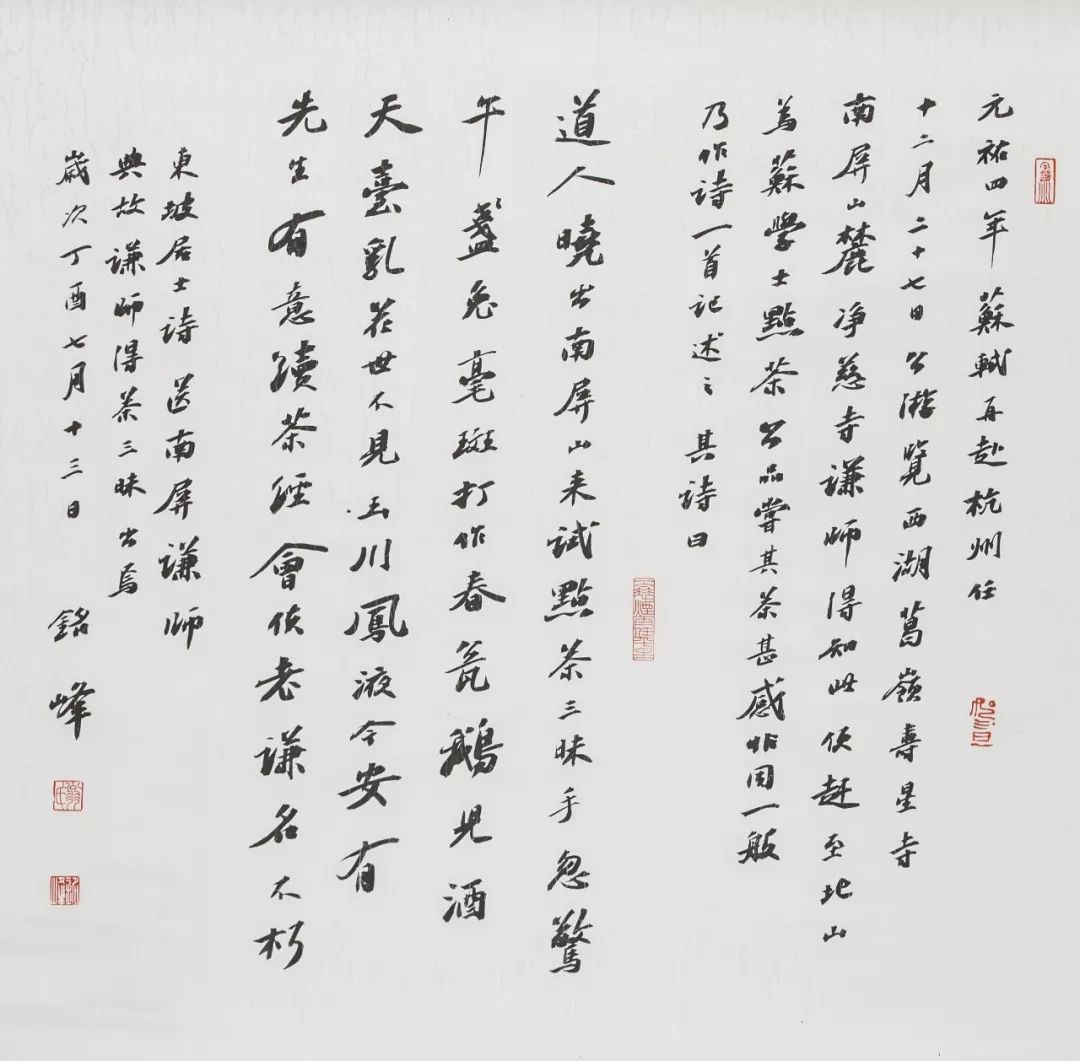 元祐四年 蘇軾再赴杭州任
十二月二十七日公游覽西湖葛嶺壽星寺
南屏山麓净慈寺謙師得知此便趕至北山
為蘇學士點茶公品嘗其茶甚感非同一般
乃作詩一首記述之 其詩曰
道人曉出南屏山来試點茶三昧手忽驚
午盞兔毫斑打作春瓮鵝兒酒
天臺乳花世不見玉川鳳液今安有
先生有意續茶經會使老謙名不朽
東坡居士詩 送南屏謙師
典故謙師得茶三昧出焉
歲次丁酉七月十三日 銘峰